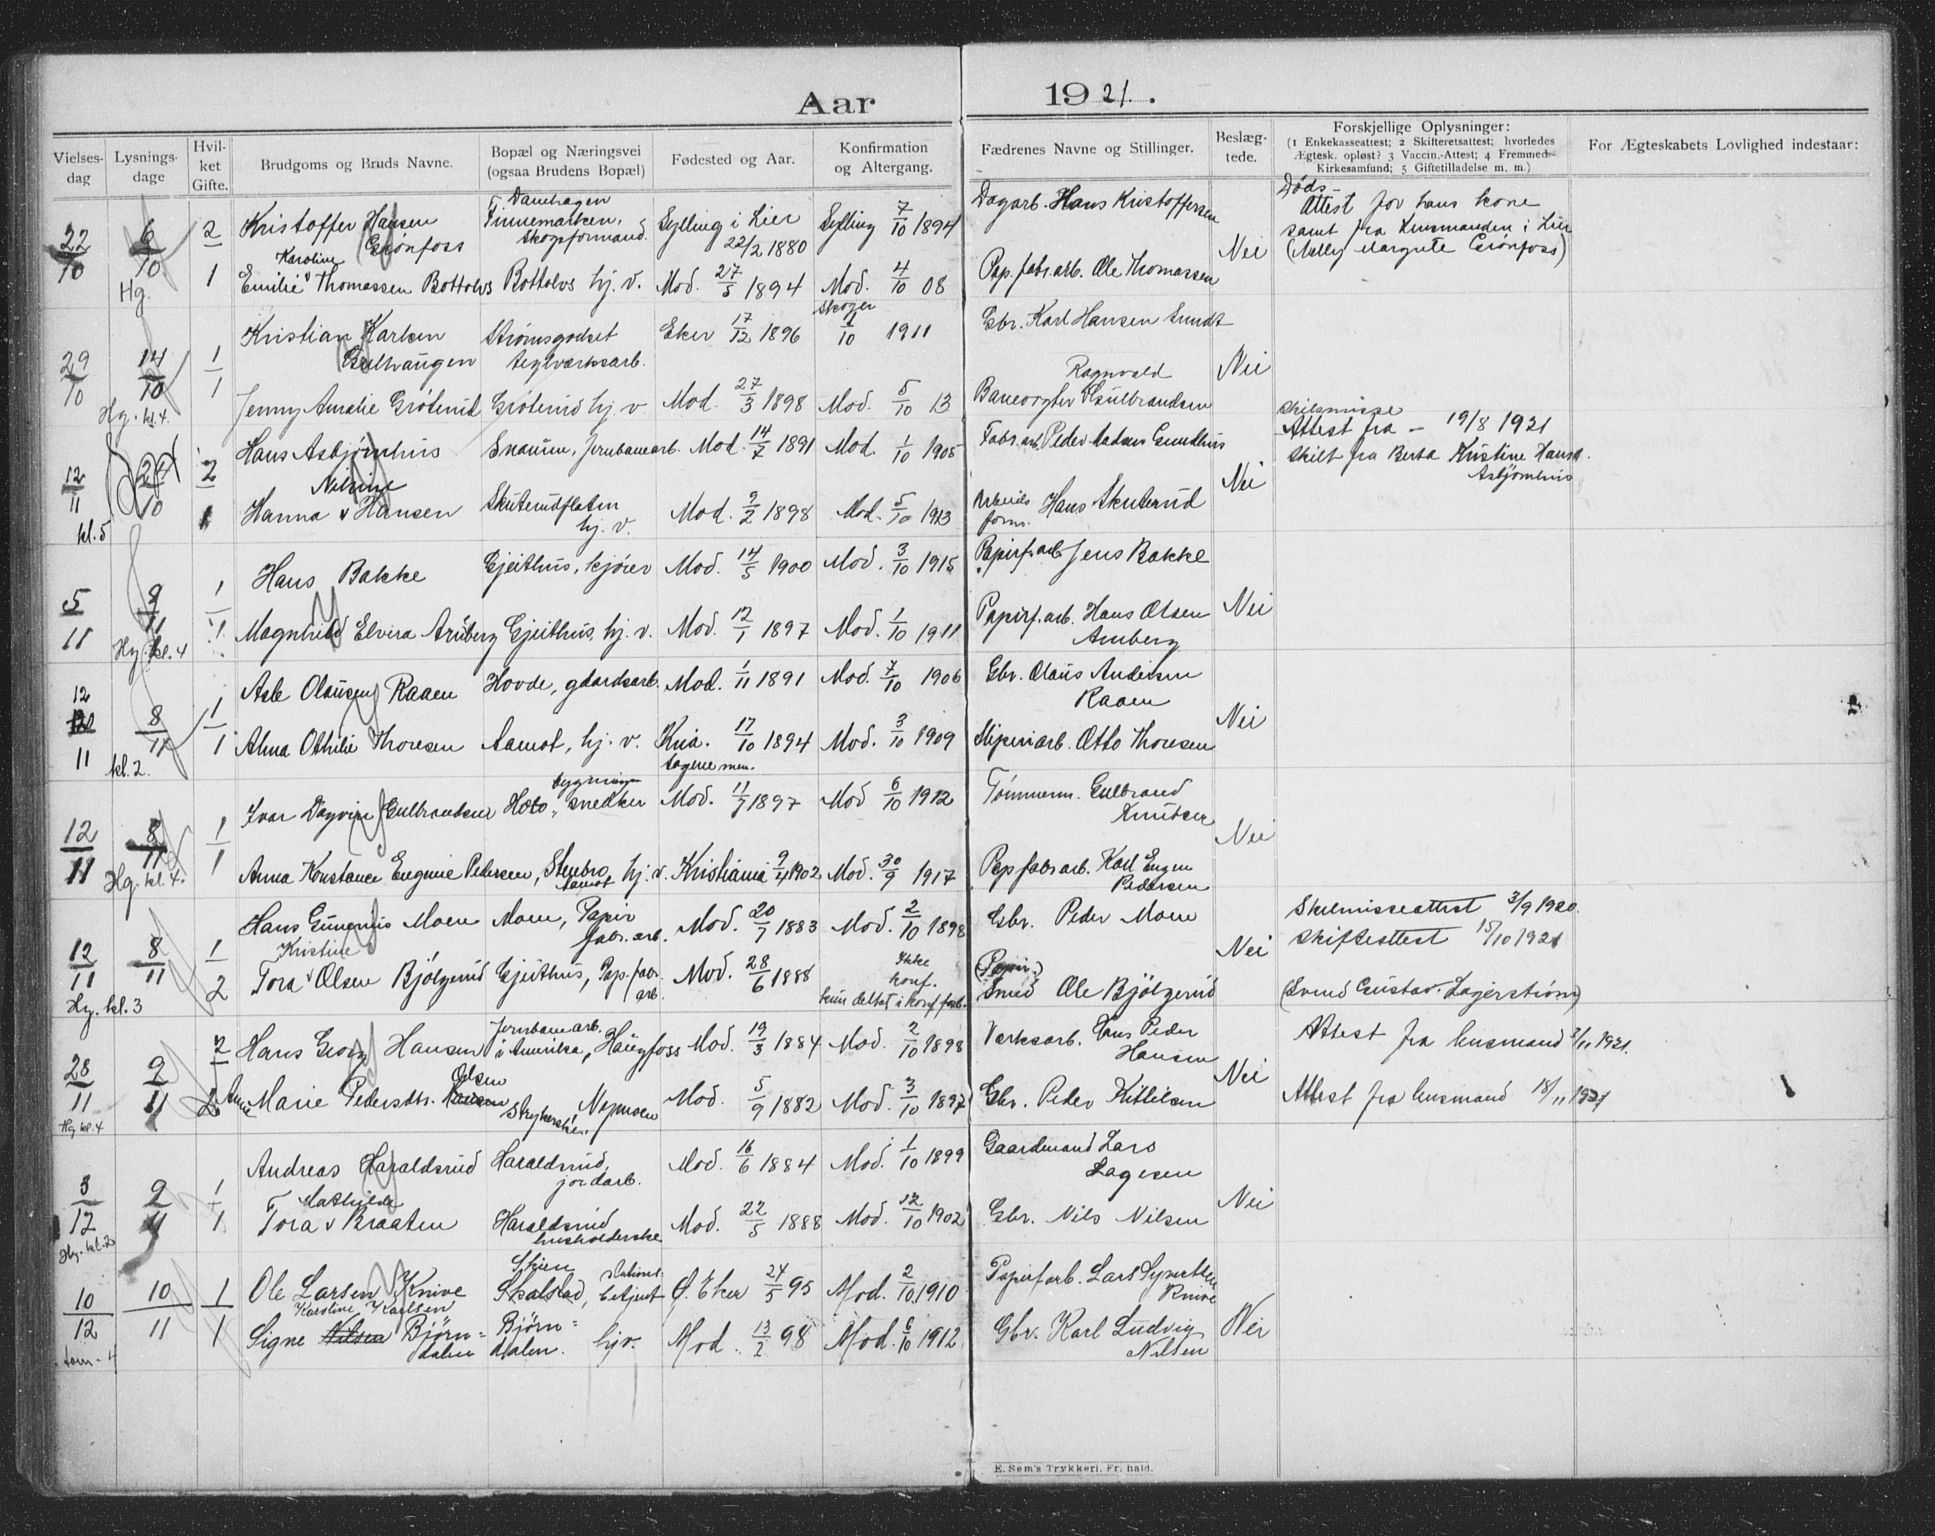 Aar 1921.
Vielses-dag
Lysnings-dage
Hvilket Gifte.
Brudgoms og Bruds Navne.
Bopæl og Næringsvei (ogsaa Brudens Bopæl)
Fødested og Aar.
Konfirmation og Altergang.
Fædrenes Navne og Stillinger.
Beslæg-tede.
Forskjellige Oplysninger:
(1 Enkekasseattest; 2 Skifteretsattest; hvorledes
Ægtesk. opløst? 3 Vaccin.-Attest; 4 Fremmed
Kirkesamfund; 5 Giftetilladelse m. m.)
For Ægteskabets Lovlighed indestaar:
22/10 6/10 2 Kristoffer Hansen Grønfoss Finnemarken, Skogsformand. Sylling i Lier 22/2 1880 Sylling 7/10 1894 Dagarb. Hans Kristoffersen
Døds-
Attest for hans kone
samt fra Lensmanden i Lier
(Nelly Margrete Grønfoss)
Nei
Hg. 1 Karoline Emilie Thomassen Bottolvs Bottolvs hj. v. Mod. 27/5 1894 Mod. 4/10 08 Pap.fabr.arb. Ole Thomassen
29/10 14/10 1 Kristian Karlsen Gulhaugen Strømsgodset teglverksarb. Eker 17/12 1896 Skoger 1/10 1911 Gbr. Karl Hansen Sundt
Nei
Hg. kl. 4. 1 Jenny Amalie Grøterud Grøterud hj. v. Mod. 27/3 1898 Mod. 5/10 13 Banevogter Ragnvald Gulbrandsen
12/11 24/10 2 Hans Asbjørnhus Snarum, Jernbanearb. Mod. 14/7 1891 Mod. 1/10 1905 Fabr.arb. Peder Madsen Gundhus
Skilsmisse
Attest fra – 19/8 1921
skilt fra Berta Kristine Hansd.
Asbjørnhus
Nei
kl. 5 1 Hanna Nilsine Hansen Skuterudflaten hj. v. Mod. 9/2 1898 Mod. 5/10 1913 Arbeidsform. Hans Skuterud
5/11 9/11 1 Hans Bakke Gjeithus, kjører Mod. 14/5 1900 Mod. 3/10 1915 Papirf.arb. Jens Bakke
Nei
Hg. kl. 4 1 Magnhild Elvira Amberg Gjeithus, hj. v. Mod. 12/1 1897 Mod. 1/10 1911 Papirf.arb. Hans Olsen Amberg
12/11 8/11 1 Asle Olausen Raaen Hovde, gaardsarb. Mod. 1/11 1891 Mod. 7/10 1906 Gbr. Olaus Andersen Raaen
Nei
kl. 2. 1 Alma Othilie Thoresen Aamot, hj. v. Kria. 17/10 1894 Mod. 3/10 1909 Sliperiarb. Otto Thoresen
12/11 8/11 1 Ivar Dagvin Gulbrandsen bygnings snedker Mod. 11/7 1897 Mod 6/10 1912 Tømmerm. Gulbrand Knudsen
Nei
Hg. kl. 4. 1 Anna Konstance Eugenie Pedersen, Stenbro, Aamot hj. v. Kristiania 9/4 1902 Mod. 30/9 1917 Papfabrarb. Karl Eugen Pedersen
12/11 8/11 1 Hans Gunerius Moen Moen, Papir fabr. arb. Mod. 20/7 1883 Mod. 2/10 1898 Gbr. Peder Moen
Skilsmisseattest 3/9 1920.
Skifteattest 15/10 1921
Nei
Hg. kl. 3 2 Tora Kristine Olsen Bjølgerud Gjeithus, Pap. fabr. arb. Mod. 28/6 1888 Ikke konf. kun deltat i konf. forb. (Papir.) Smed Ole Bjølgerud
(Svend Gustav Lagerstrøm)
28/11 9/11 2 Hans Georg Hansen Jernbanearb. i Amerika, Haugfoss Mod. 19/3 1884 Mod. 2/10 1898 Verksarb. Hans Peder Hansen
Attest fra lensmand 3/11 1921.
Nei
Hg kl. 4 2 Anne Marie Pedersdtr. Olsen Nymoen Mod. 5/9 1882 Mod. 3/10 1897 Gbr. Peder Kittilsen
Attest fra lensmand 18/11 1921
3/12 9/11 1 Andreas Haraldsrud Haraldsrud, jordarb. Mod. 16/6 1884 Mod. 1/10 1899 Gaardmand Lars Lagesen
Nei
Hg. kl. 2 1 Tora Mathilde Braaten Haraldsrud husholderske Mod. 22/5 1888 Mod. 12/10 1902 Gbr. Nils Nilsen
10/12 10/11 1 Ole Larsen Knive Skien Skalstad, stations betjent Ø. Eker 24/5 95 Mod. 2/10 1910 Papirfarb. Lars Syvertsen Knive
Nei
1 Signe Karoline Karlsen Nilsen Bjørndalen Bjørn=dalen. hjv. Mod. 13/2 98 Mod. 6/10 1912 Gbr. Karl Ludvig Nilsen
E. Sem's Trykkeri, Fr. hald.